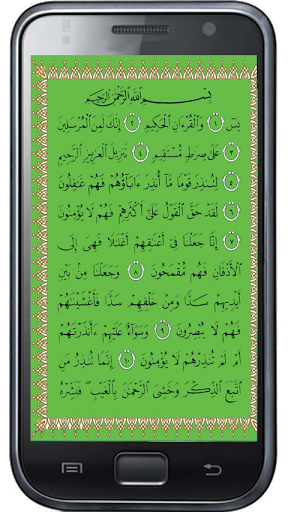 بِسْمِ ٱللَّهِ ٱلرَّحْمَٰنِ ٱلرَّحِيمِ
يسٓ ١ وَٱلْقُرْءَانِ ٱلْحَكِيمِ ٢ إِنَّكَ لَمِنَ ٱلْمُرْسَلِينَ
٣ عَلَىٰ صِرَٰطٍ مُّسْتَقِيمٍ ٤ تَنزِيلَ ٱلْعَزِيزِ ٱلرَّحِيمِ
٥ لِتُنذِرَ قَوْمًا مَّآ أُنذِرَ ءَابَآؤُهُمْ فَهُمْ غَٰفِلُونَ
٦ لَقَدْ حَقَّ ٱلْقَوْلُ عَلَىٰٓ أَكْثَرِهِمْ فَهُمْ لَا يُؤْمِنُونَ
٧ إِنَّا جَعَلْنَا فِىٓ أَعْنَٰقِهِمْ أَغْلَٰلًا فَهِىَ إِلَى
ٱلْأَذْقَانِ فَهُم مُّقْمَحُونَ ٨ وَجَعَلْنَا مِنۢ بَيْنِ
أَيْدِيهِمْ سَدًّا وَمِنْ خَلْفِهِمْ سَدًّا فَأَغْشَيْنَٰهُمْ
فَهُمْ لَا يُبْصِرُونَ ٩ وَسَوَآءٌ عَلَيْهِمْ ءَأَنذَرْتَهُمْ
أَمْ لَمْ تُنذِرْهُمْ لَا يُؤْمِنُونَ ١٠ إِنَّمَا تُنذِرُ مَنِ
ٱتَّبَعَ ٱلذِّكْرَ وَخَشِىَ ٱلرَّحْمَٰنَ بِٱلْغَيْبِ ۖ فَبَشِّرْهُ